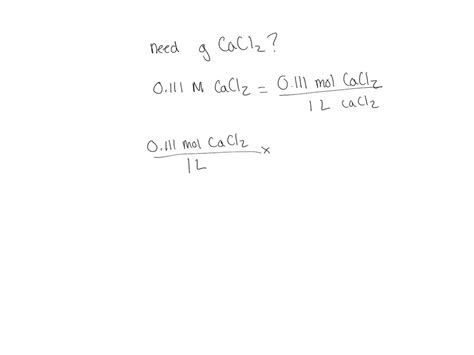 need g CaCl2?
0.111 M CaCl2 = 0.111 mol CaCl2
1 L caCl2
0.111 mol CaCl2 ×
1L